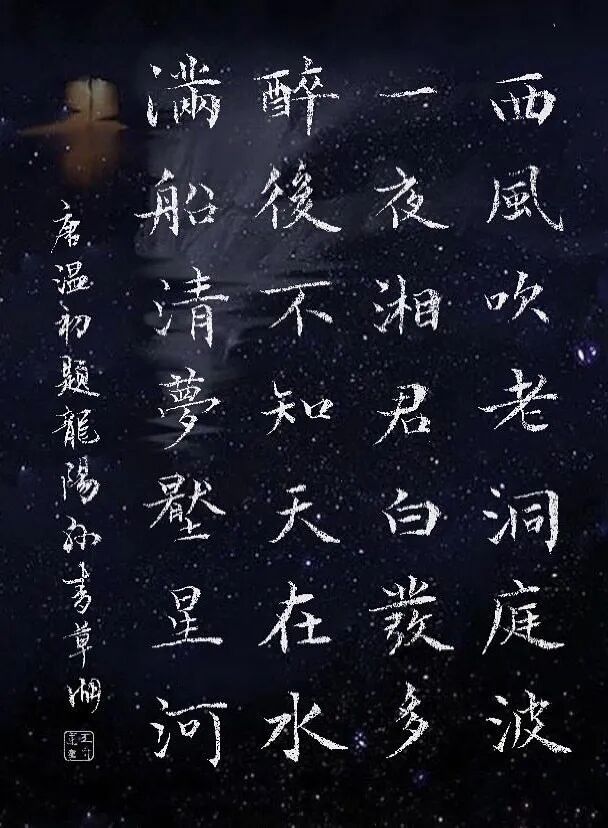 西風吹老洞庭波
一夜湘君白發多
醉後不知天在水
滿船清夢壓星河
唐温初題龍陽縣青草湖